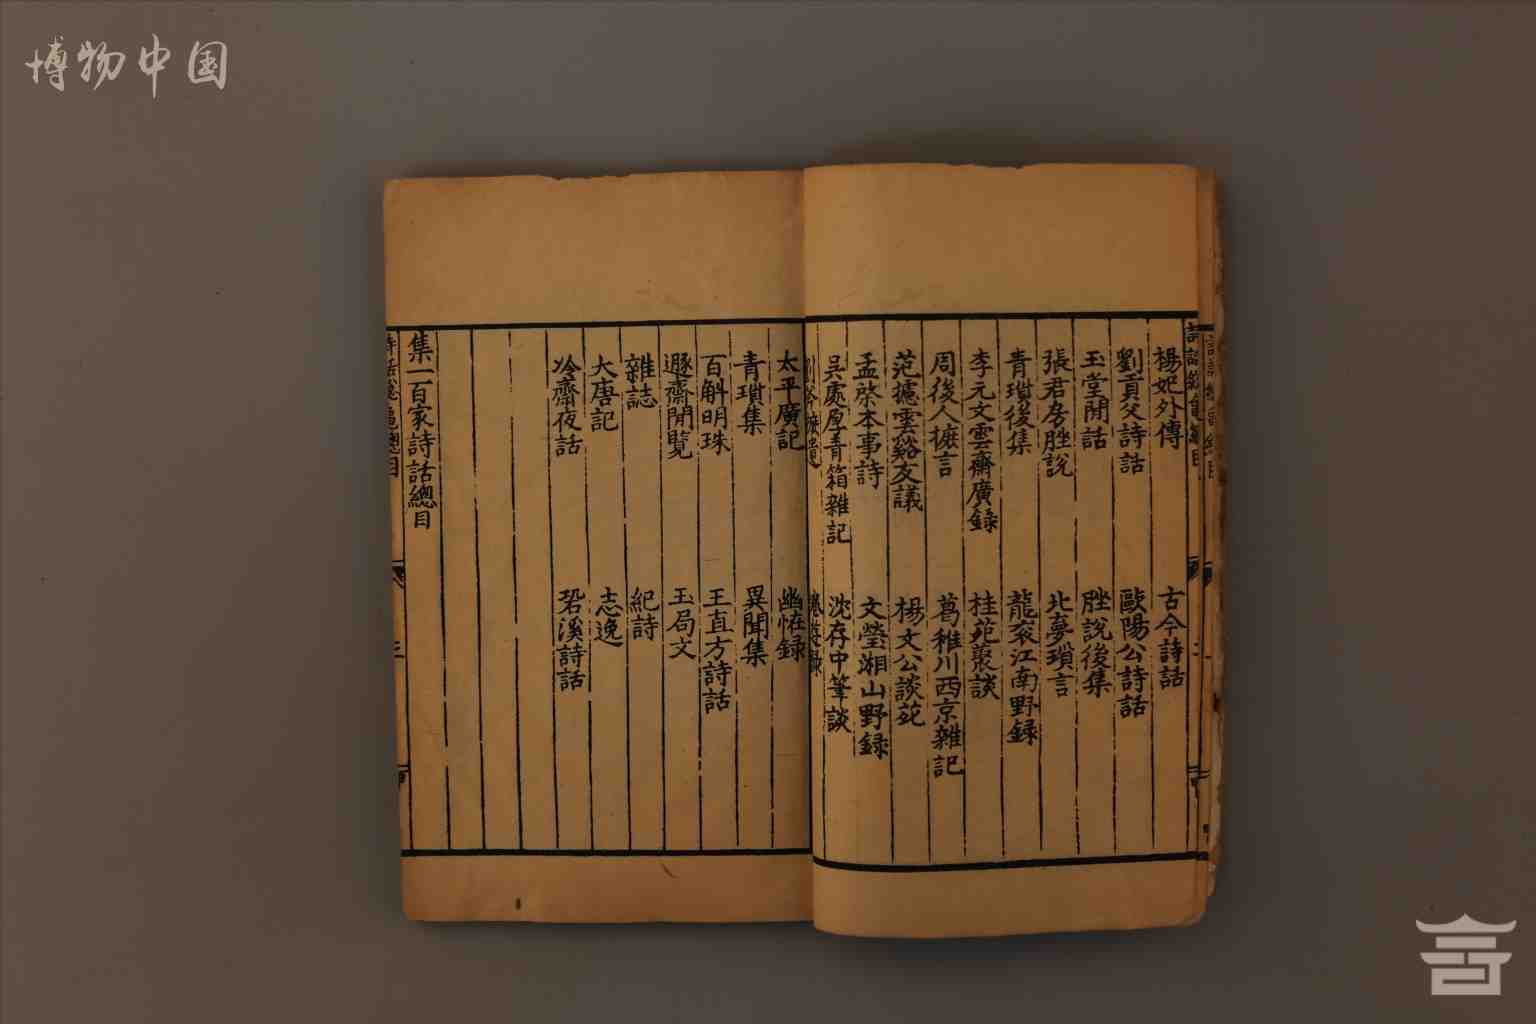 博物中国
楊妃外傳 古今詩話
劉貢父詩話 歐陽公詩話
玉堂閒話 脞說後集
張君房脞說 北夢瑣言
青瑣後集 龍衮江南野録
李元文雲齋廣録 桂苑叢談
周後人摭言 葛稚川西京雜記
范攄雲谿友議 楊文公談苑
孟棨本事詩 文瑩湘山野録
吳處厚青箱雜記 沈存中筆談
太平廣記 幽怪録
青瑣集 異聞集
百斛明珠 王直方詩話
遯齋閒覽 玉局文
雜誌 紀詩
大唐記 志逸
冷齋夜話 䂬溪詩話
集一百家詩話總目